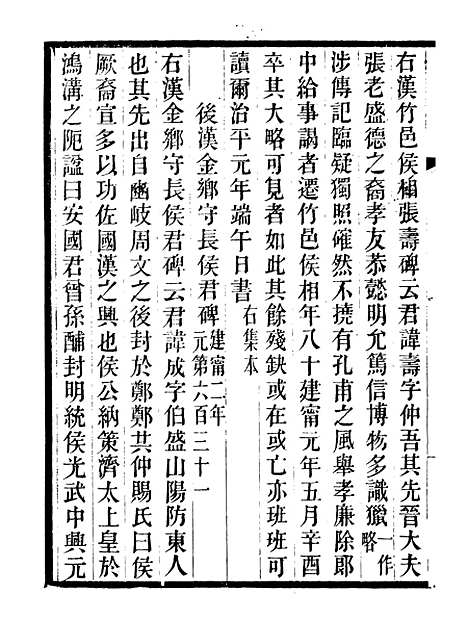 右漢竹邑侯相張壽碑云君諱壽字仲吾其先晉大夫
張老盛德之裔孝友恭懿明允篤信博物多識獵一作略
涉傳記臨疑獨照確然不撓有孔甫之風舉孝廉除郎
中給事謁者遷竹邑侯相年八十建甯元年五月辛酉
卒其大略可見者如此其餘殘缺或在或亡亦班班可
讀爾治平元年端午日書右集本
後漢金鄉守長侯君碑建甯二年元第六百三十一
右漢金鄉守長侯君碑云君諱成字伯盛山陽防東人
也其先出自豳岐周文之後封於鄭鄭共仲賜氏曰侯
厥裔宣多以功佐國漢之興也侯公納策濟太上皇於
鴻溝之阨諡曰安國君曾孫酺封明統侯光武中興元